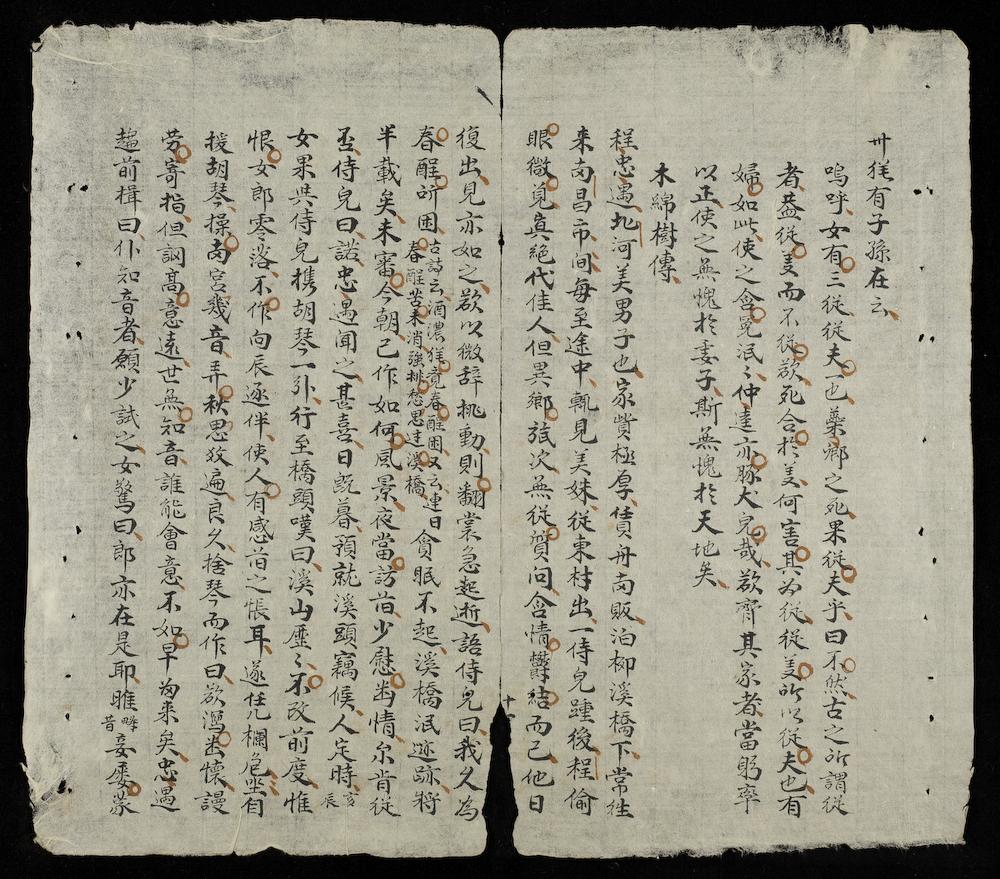 卅猶有子孫在云
嗚呼女有三從從夫一也蘂鄉之死果從夫乎曰不然古之所謂從
者蓋從美而不從欲死合於美何害其為從從美所以從夫也有
婦如此使之含冤泯〻仲逵亦豚犬兒哉欲齊其家者當躬率
以正使之無愧於妻子斯無愧於天地矣
木綿樹傳
程忠遇北河美男子也家貲極厚賃舟南販泊柳溪橋下常徃
来南昌市間每至途中輒見美姝從東村出一侍兒踵後程偷
眼微覓真絶代佳人但異鄉旅次無從質問含情欝結而已他日
復出見亦如之欲以微辞挑動則翻裳急起逝語侍兒曰我久為
春酲所困古詩云酒濃猶竟春酲困又云連日春酲苦未消強排愁思達溪橋貪眠不起溪橋泯迹跡將
半載矣未審今朝已作如何風景夜當訪昔少慰幽情尔肯從
否侍兒曰諾忠遇聞之甚喜日既暮預就溪頭竊候人定時亥辰
女果與侍兒携胡琴一引行至橋頭嘆曰溪山歷〻不改前度惟
恨女郎零落不作向辰逐伴使人有感昔之悵耳遂任凡欄危坐有
援胡琴操南宮幾音弄秋思效遍良久捨琴而作曰欲瀉幽懷謾
劳寄指但調高意遠世無知音誰能會意不如早為来矣忠遇
趨前楫曰仆知音者願少試之女驚曰郎亦在是耶睢疇昔妾屢蒙
十一